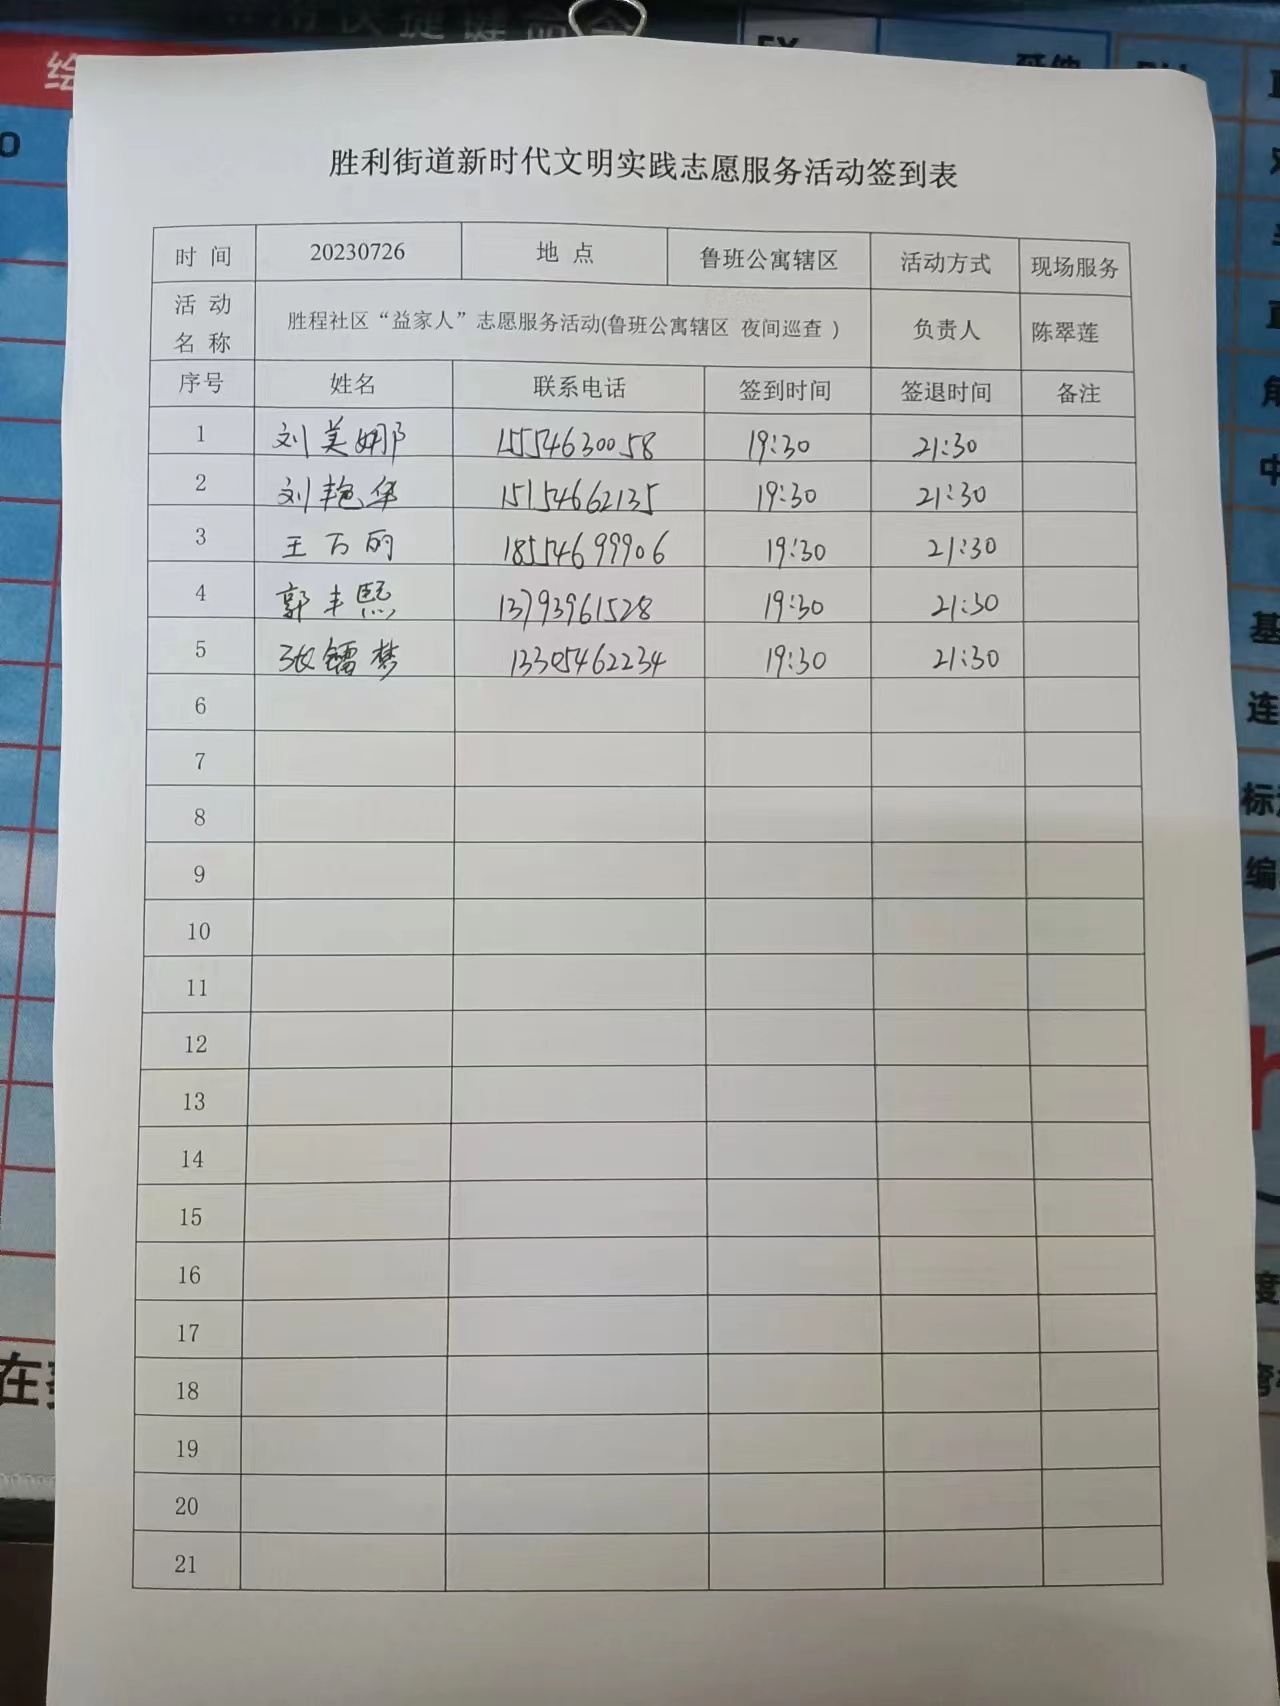 胜利街道新时代文明实践志愿服务活动签到表
时 间 20230726 地 点 鲁班公寓辖区 活动方式 现场服务
活 动 名 称 胜程社区“益家人”志愿服务活动(鲁班公寓辖区 夜间巡查 ) 负责人 陈翠莲
序号 姓名 联系电话 签到时间 签退时间 备注
1 刘美娜 15554630058 19:30 21:30
2 刘艳华 15154662135 19:30 21:30
3 王万丽 18554699906 19:30 21:30
4 郭丰熙 13793961528 19:30 21:30
5 张镭梦 13305462234 19:30 21:30
6
7
8
9
10
11
12
13
14
15
16
17
18
19
20
21